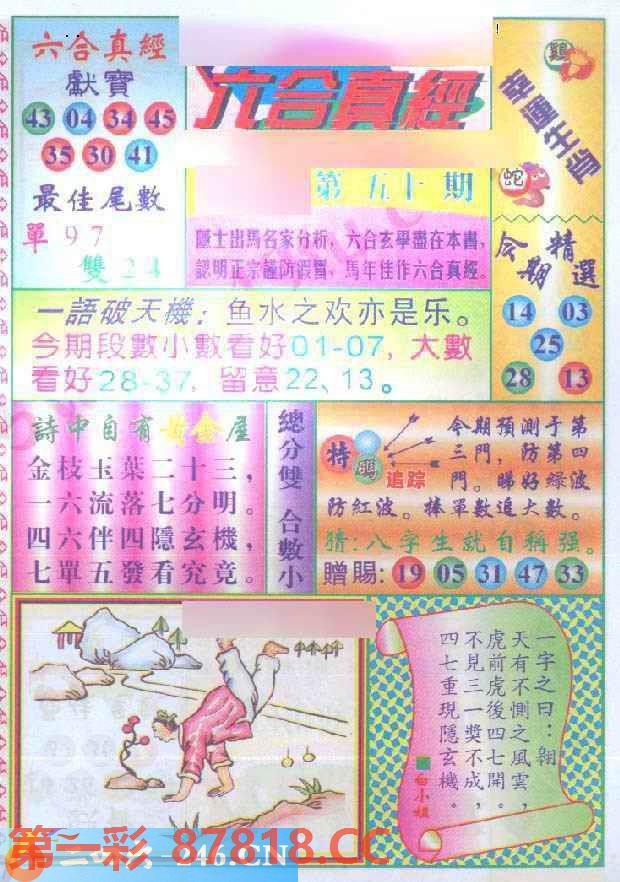 六合真經
獻寶
43 04 34 45
35 30 41
最佳尾數
單97
雙24
六合真經
第五十期
隱士出馬名家分析，六合玄學盡在本書，
認明正宗謹防假冒，馬年佳作六合真經。
雞
幸運生肖
蛇
今期精選
14 03
25
28 13
一語破天機：鱼水之欢亦是乐。
今期段數小數看好01-07，大數
看好28-37，留意22、13。
詩中自有黃金屋
金枝玉葉二十三，
一六流落七分明。
四六伴四隱玄機，
七單五發看究竟。
總分雙 合數小
特碼追踪
今期預測于第
三門，防第四
門。睇好绿波
防紅波。捧單數追大數。
猜：八字生就自稱强。
贈賜：19 05 31 47 33
一字之曰：翱
天有不惻之風雲，
虎前虎後四七開。
不見三一獎不成，
四七重現隱玄機。
白小姐
第一彩 87818.CC
246.CN